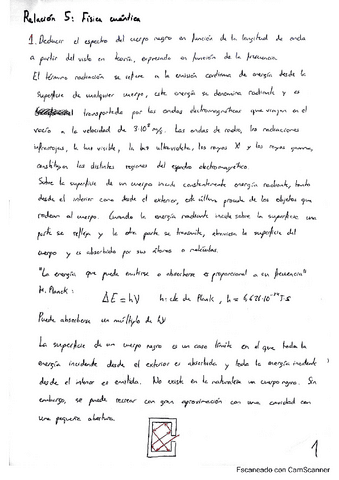 Relación 5: Física cuántica
1. Deducir el espectro del cuerpo negro en función de la longitud de onda
a partir del visto en teoría, expresado en función de la frecuencia.
El término radiación se refiere a la emisión continua de energía desde la
superficie de cualquier cuerpo, esta energía se denomina radiante y es
transportada por las ondas electromagnéticas que viajan en el
vacío a la velocidad de 3·10⁸ m/s. Las ondas de radio, las radiaciones
infrarrojas, la luz visible, la luz ultravioleta, los rayos X y los rayos gamma,
constituyen las distintas regiones del espectro electromagnético.
Sobre la superficie de un cuerpo incide constantemente energía radiante, tanto
desde el interior como desde el exterior, esta última procede de los objetos que
rodean al cuerpo. Cuando la energía radiante incide sobre la superficie una
parte se refleja y la otra parte se transmite, atraviesa la superficie del
cuerpo y es absorbida por sus átomos o moléculas.
"La energía que puede emitirse o absorberse es proporcional a su frecuencia"
M. Planck:
ΔE = hν h: cte de Plank, h = 6,626·10⁻³⁴ J·s
Puede absorberse un múltiplo de hν
La superficie de un cuerpo negro es un caso límite en el que toda la
energía incidente desde el exterior es absorbida y toda la energía incidente
desde el interior es emitida. No existe en la naturaleza un cuerpo negro. Sin
embargo, se puede recrear con gran aproximación con una cavidad con
una pequeña abertura.
1
Escaneado con CamScanner